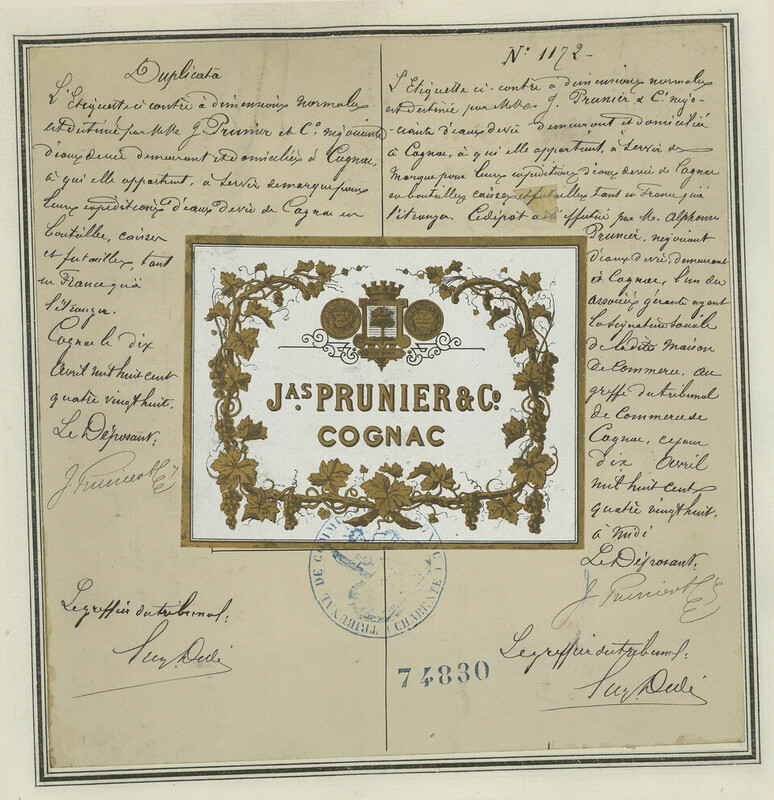 Duplicata
L'Etiquette ci contre à dimensions normales
est destinée par MMs J. Prunier et Co négociants
d'eaux de vie demeurant et domiciliés à Cognac,
à qui elle appartient, à servir de marque pour
leurs expéditions d'eaux de vie de Cognac en
bouteilles, caisses
et futailles, tant
en France qu'à
l'étranger.
Cognac le dix
avril mil huit cent
quatre vingt huit.
Le Déposant,
J. Prunier & Cie
Le greffier du tribunal,
No 1172 -
L'Etiquette ci-contre à dimensions normales
est destinée par MMs J. Prunier & Co négo-
ciants d'eaux de vie demeurant et domiciliés
à Cognac, à qui elle appartient, à servir de
marque pour leurs expéditions d'eaux de vie de Cognac
en bouteilles caisses et futailles tant en France qu'à
l'étranger Ce dépôt a été effectué par M. Alphonse
Prunier, négociant
d'eaux de vie, demeurant
à Cognac, l'un des
associés gérants ayant
la signature sociale
de la dite maison
de Commerce, au
greffe du tribunal
de Commerce de
Cognac, ce jour
dix Avril
mil huit cent
quatre vingt huit.
à midi
Le Déposant,
J. Prunier & Cie
Le greffier du tribunal,
JAS PRUNIER & Co
COGNAC
TRIBUNAL DE COMMERCE
CHARENTE
74830